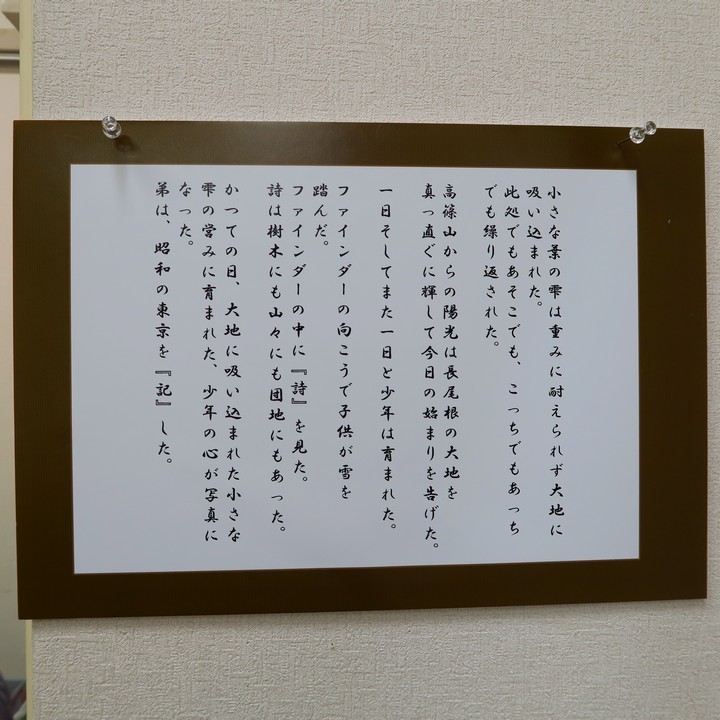 小さな葉の雫は重みに耐えられず大地に
吸い込まれた。
此処でもあそこでも、こっちでもあっち
でも繰り返された。
高篠山からの陽光は長尾根の大地を
真っ直ぐに輝して今日の始まりを告げた。
一日そしてまた一日と少年は育まれた。
ファインダーの向こうで子供が雪を
踏んだ。
ファインダーの中に『詩』を見た。
詩は樹木にも山々にも団地にもあった。
かつての日、大地に吸い込まれた小さな
雫の営みに育まれた、少年の心が写真に
なった。
弟は、昭和の東京を『記』した。